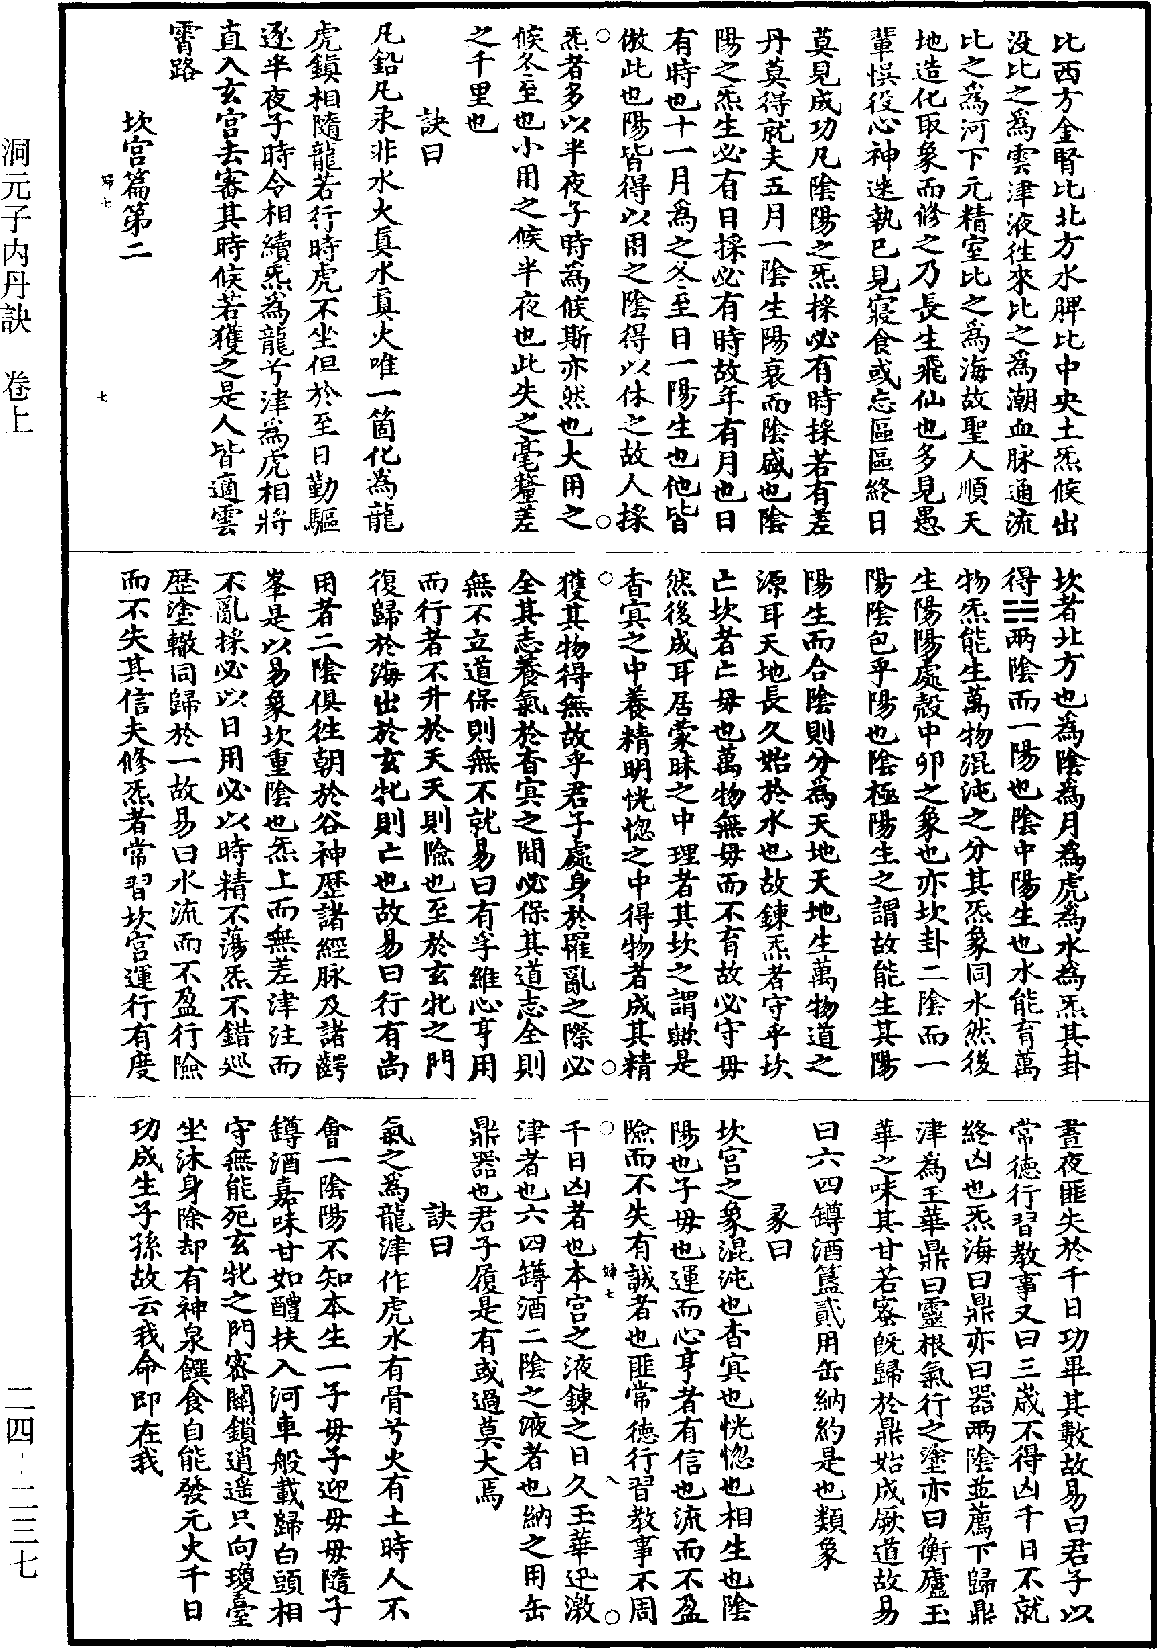 比西方金腎比北方水脾比中央土炁候出
没比之為雲津液往來比之為潮血脉通流
比之為河下元精室比之為海故聖人順天
地造化取象而修之乃長生飛仙也多見愚
輩悮役心神迷執巳見寢食或忘區區終日
莫見成功凡陰陽之炁採必有時採若有差
丹莫得就夫五月一陰生陽衰而陰盛也陰
陽之炁生必有日採必有時故年有月也日
有時也十一月為之冬至日一陽生也他皆
倣此也陽皆得以用之陰得以休之故人採
炁者多以半夜子時為候斯亦然也大用之
候冬至也小用之候半夜也此失之毫釐差
之千里也
訣曰
凡鉛凡汞非水火真水真火唯一箇化為龍
虎鎮相隨龍若行時虎不坐但於至日勤驅
逐半夜子時令相續炁為龍兮津為虎相將
直入玄宫去審其時候若獲之是人皆適雲
霄路
坎宫篇第二
婦七
七
坎者北方也為陰為月為虎為水為炁其卦
得☵兩陰而一陽也陰中陽生也水能育萬
物炁能生萬物混沌之分其炁象同水然後
生陽陽處殼中卯之象也亦坎卦二陰而一
陽陰包乎陽也陰極陽生之謂故能生其陽
陽生而合陰則分為天地天地生萬物道之
源耳天地長久始於水也故鍊炁者守乎坎
亡坎者亡毋也萬物無毋而不育故必守毋
然後成耳居蒙昧之中理者其坎之謂歟是
杳㝠之中養精明恍惚之中得物者成其精
獲其物得無故乎君子處身於罹亂之際必
全其志養氣於杳㝠之間必保其道志全則
無不立道保則無不就易曰有孚維心亨用
而行者不升於天天則險也至於玄牝之門
復歸於海出於玄牝則亡也故易曰行有尚
用者二陰俱往朝於谷神歴諸經脉及諸齶
峯是以易象坎重陰也炁上而無差津注而
不亂採必以日用必以時精不蕩炁不錯巡
歴塗轍同歸於一故易曰水流而不盈行險
而不失其信夫修炁者常習坎宫運行有度
晝夜匪失於千日功畢其數故易曰君子以
常徳行習教事又曰三歲不得凶千日不就
終凶也炁海曰鼎亦曰器兩陰並薦下歸鼎
津為玉華鼎曰靈根氣行之塗亦曰衡廬玉
華之味其甘若宻旣歸於鼎始成厥道故易
曰六四罇酒簋貳用缶納約是也類象
彖曰
坎宫之象混沌也杳㝠也恍惚也相生也陰
陽也子毋也運而心亨者有信也流而不盈
險而不失有誠者也匪常徳行習教事不周
婦七
八
千日凶者也本宫之液鍊之日久玉華迅激
津者也六四罇酒二陰之液者也納之用缶
鼎器也君子履是有或過莫大焉
訣曰
氣之為龍津作虎水有骨兮火有土時人不
會一陰陽不知本生一子毋子迎毋毋隨子
罇酒嘉味甘如醴扶入河車般載歸白頭相
守無能死玄牝之門宻關鎖逍遥只向瓊臺
坐沐身除却有神泉饌食自能發元火千日
功成生子孫故云我命即在我
洞元子内丹訣　卷上
二四-二三七